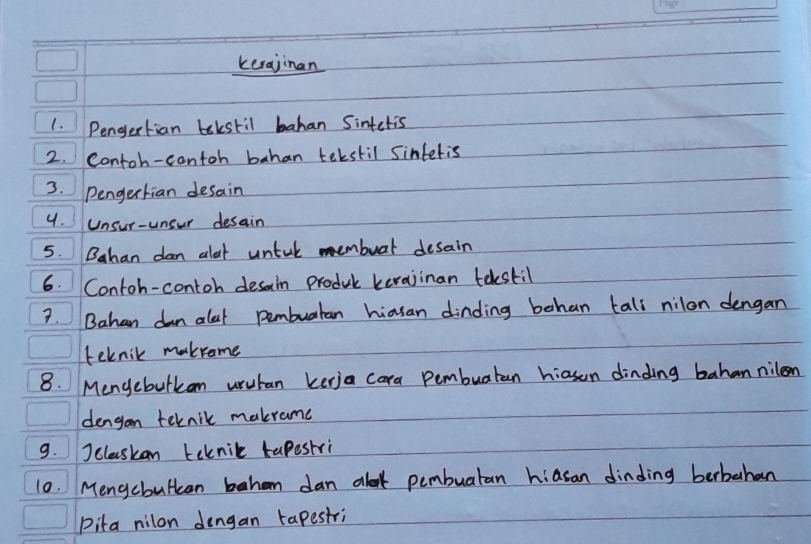 Kerajinan
1. Pengertian tekstil bahan Sintetis
2. Contoh-contoh bahan tekstil Sintetis
3. Pengertian desain
4. Unsur-unsur desain
5. Bahan dan alat untuk membuat desain
6. Contoh-contoh desain Produk kerajinan tekstil
7. Bahan dan alat pembuatan hiasan dinding bahan tali nilon dengan
teknik makrame
8. Mengebutkan urutan kerja cara pembuatan hiasan dinding bahan nilon
dengan teknik makrame
9. Jelaskan teknik tapestri
10. Mengebutkan bahan dan alat pembuatan hiasan dinding berbahan
Pita nilon dengan tapestri